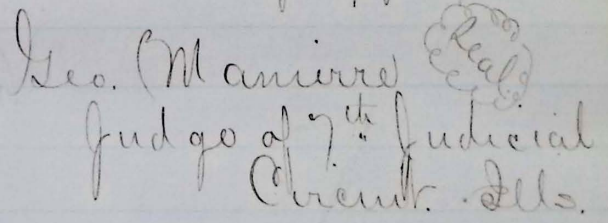 Geo. Manierre (Seal)
Judge of 7th Judicial
Circuit. Ills.